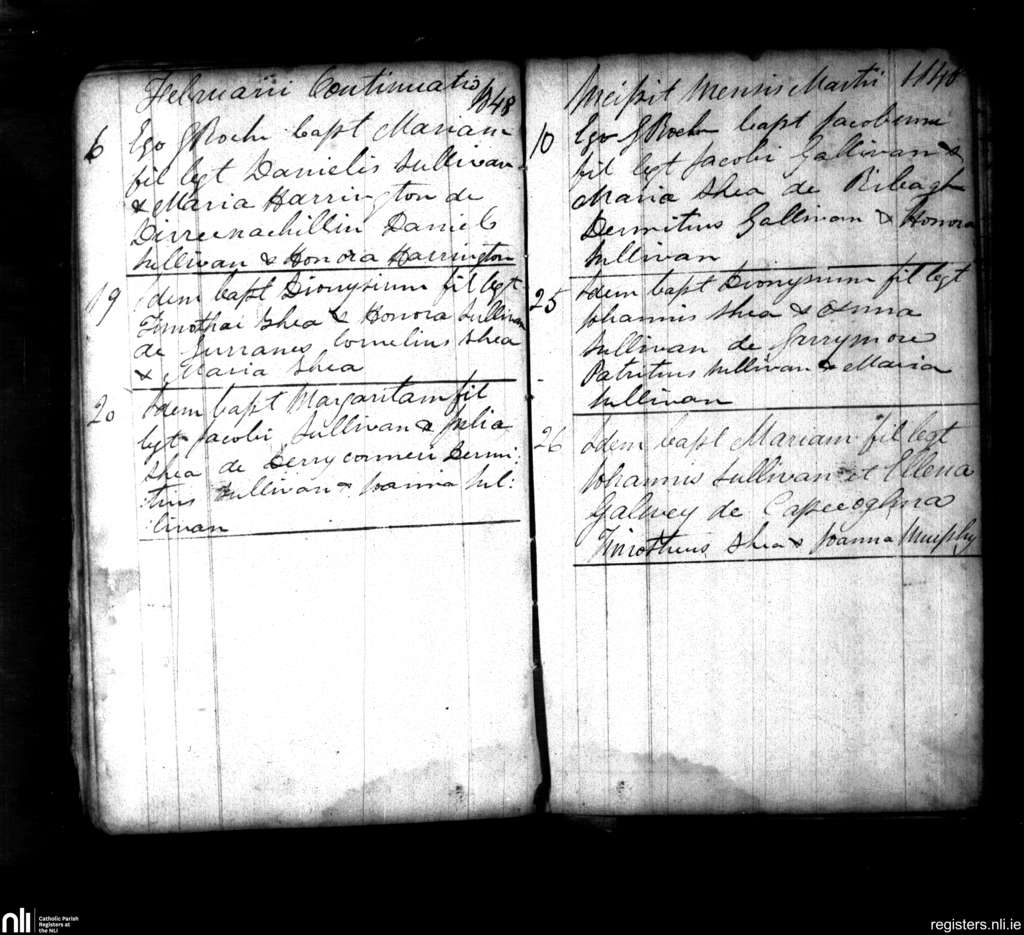 Februarii Continuatio
1848
6 Ego G Roche bapt Mariam
fil lgt Danielis Sullivan
& Maria Harrington de
Derreenachillin Daniel
Sullivan & Honora Harrington
19 Idem bapt Dionysium fil lgt
Timothai Shea & Honora Sullivan
de Gurranes Cornelius Shea
& Maria Shea
20 Idem bapt Margaritam fil
lgt Jacobi Sullivan &
Shea de Dermi:
:tius Sullivan & Joanna Sul:
:livan
Incipit Mensis Martii 1848
10 Ego G Roche bapt Jacobum
fil lgt Jacobi Gallivan &
Maria Shea de
Dermitius Gallivan & Honora
Sullivan
25 Idem bapt Dionysium fil lgt
Johannis Shea & Anna
Sullivan de Garrymore
Patritius Sullivan & Maria
Sullivan
26 Idem bapt Mariam fil legt
Johannis Sullivan et Ellena
Galwey de
Timotheus Shea & Joanna Murphy
nli
Catholic Parish
Registers at
the NLI
registers.nli.ie